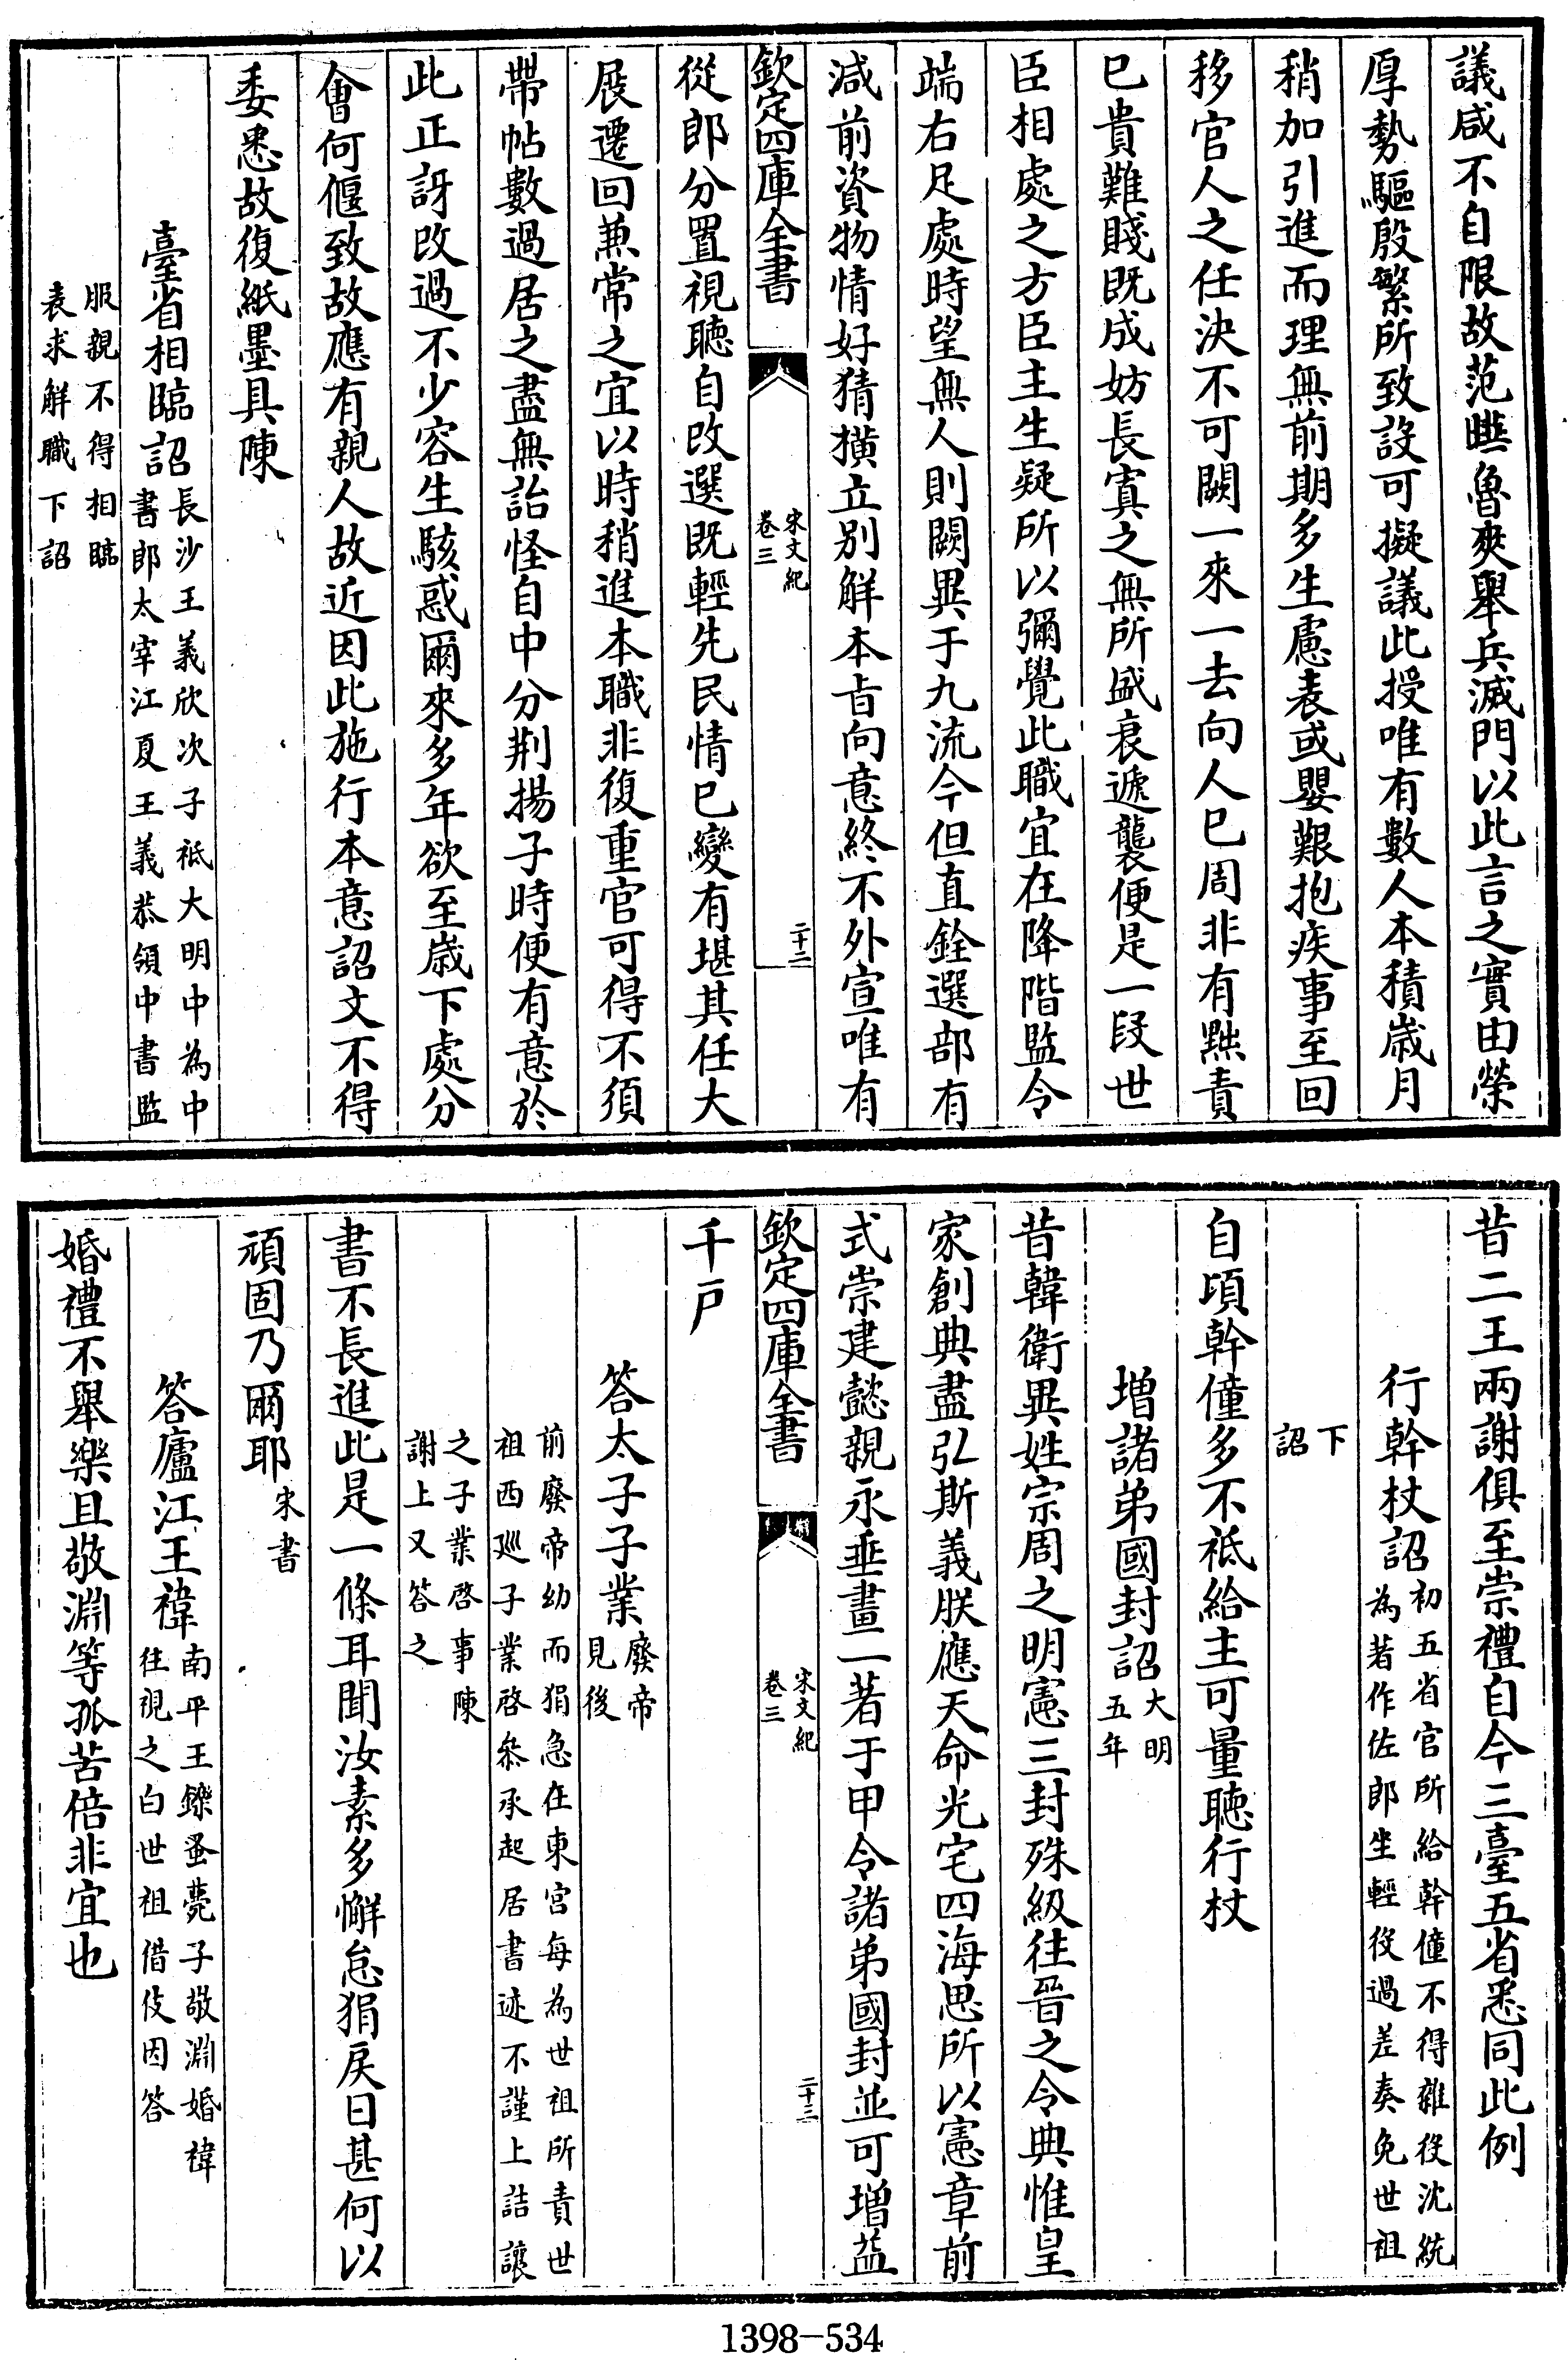 議咸不自限故范曄魯爽舉兵滅門以此言之實由榮
厚勢驅殷繁所致設可擬議此授唯有數人本積歲月
稍加引進而理無前期多生慮表或嬰艱抱疾事至回
移官人之任決不可闕一來一去向人已周非有黜責
已貴難賤既成妨長寘之無所盛衰遞襲便是一段世
臣相處之方臣主生疑所以彌覺此職宜在降階監令
端右足處時望無人則闕異于九流今但直銓選部有
減前資物情好猜横立別解本㫖向意終不外宣唯有
欽定四庫全書
宋文紀
卷三
二十二
從郎分置視聽自改選既輕先民情已變有堪其任大
展遷回兼常之宜以時稍進本職非復重官可得不須
帶帖數過居之盡無詒怪自中分荆揚子時便有意於
此正訝改過不少容生駭惑爾來多年欲至歲下處分
會何偃致故應有親人故近因此施行本意詔文不得
委悉故復紙墨具陳
臺省相臨詔
長沙王義欣次子祗大明中為中
書郎太宰江夏王義恭領中書監
服親不得相臨
表求解職下詔
昔二王兩謝俱至崇禮自今三臺五省悉同此例
行幹杖詔
初五省官所給幹僮不得雜役沈統
為著作佐郎坐輕役過差奏免世祖
下
詔
自頃幹僮多不祗給主可量聽行杖
增諸弟國封詔
大明
五年
昔韓衛異姓宗周之明憲三封殊級往晉之令典惟皇
家創典盡弘斯義朕應天命光宅四海思所以憲章前
式崇建懿親永垂畫一著于甲令諸弟國封並可增益
欽定四庫全書
宋文紀
卷三
二十三
千戸
答太子子業
廢帝
見後
前廢帝幼而狷急在東宮每為世祖所責世
祖西廵子業啓叅承起居書迹不謹上詰讓
之子業啓事陳
謝上又答之
書不長進此是一條耳聞汝素多懈怠狷戾日甚何以
頑固乃爾耶
宋書
答廬江王禕
南平王鑠蚤薨子敬淵婚禕
往視之白世祖借伎因答
婚禮不舉樂且敬淵等孤苦倍非宜也
1398-534